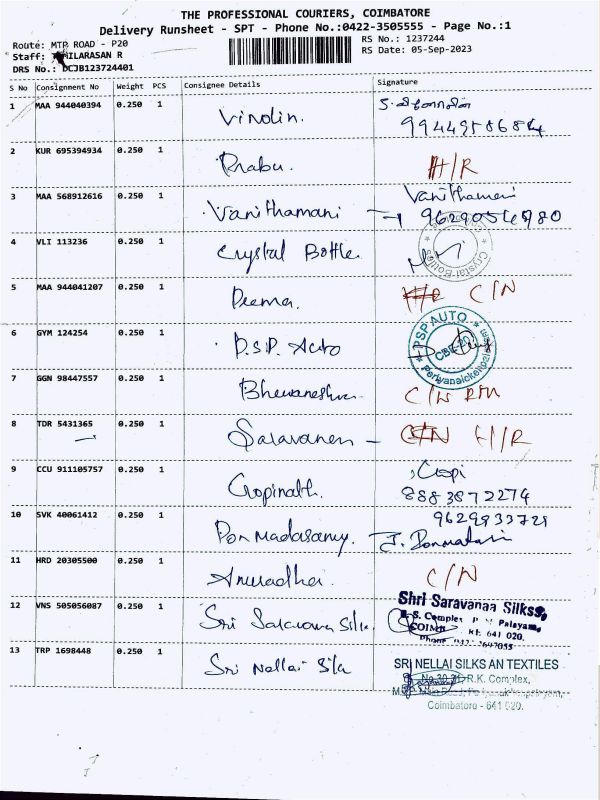 THE PROFESSIONAL COURIERS, COIMBATORE
Delivery Runsheet - SPT - Phone No.:0422-3505555 - Page No.:1
Route: MTP ROAD - P20
RS No.: 1237244
Staff: ILARASAN R
RS Date: 05-Sep-2023
DRS No.: DCJB123724401
S No Consignment No Weight PCS Consignee Details Signature
1 MAA 944040394 0.250 1 Vinolin.
2 KUR 695394934 0.250 1 Prabu. H/R
3 MAA 568912616 0.250 1 Vanithamani Vanithamani
9629054780
4 VLI 113236 0.250 1 Crystal Bottle. Crystal Bottles
5 MAA 944041207 0.250 1 Deema. H/R C/N
6 GYM 124254 0.250 1 P.S.P. Auto PSP AUTO CBE-20 Periyanaickenpalayam
7 GGN 98447557 0.250 1 Bhuvaneshwari C/N
8 TDR 5431365 0.250 1 Saravanan - C/N H/R
9 CCU 911105757 0.250 1 Gopinath. Gopi
8883872274
10 SVK 40061412 0.250 1 Ponmadasamy. 9629933721
11 HRD 20305500 0.250 1 Anuradha C/N
12 VNS 505056087 0.250 1 Sri Saravana Silk. Shri Saravanaa Silkss,
S. Complex Palayam,
641 020.
Phone
13 TRP 1698448 0.250 1 Sri Nellai Silk SRI NELLAI SILKS AN TEXTILES
R.K. Complex,
Coimbatore - 641 020.